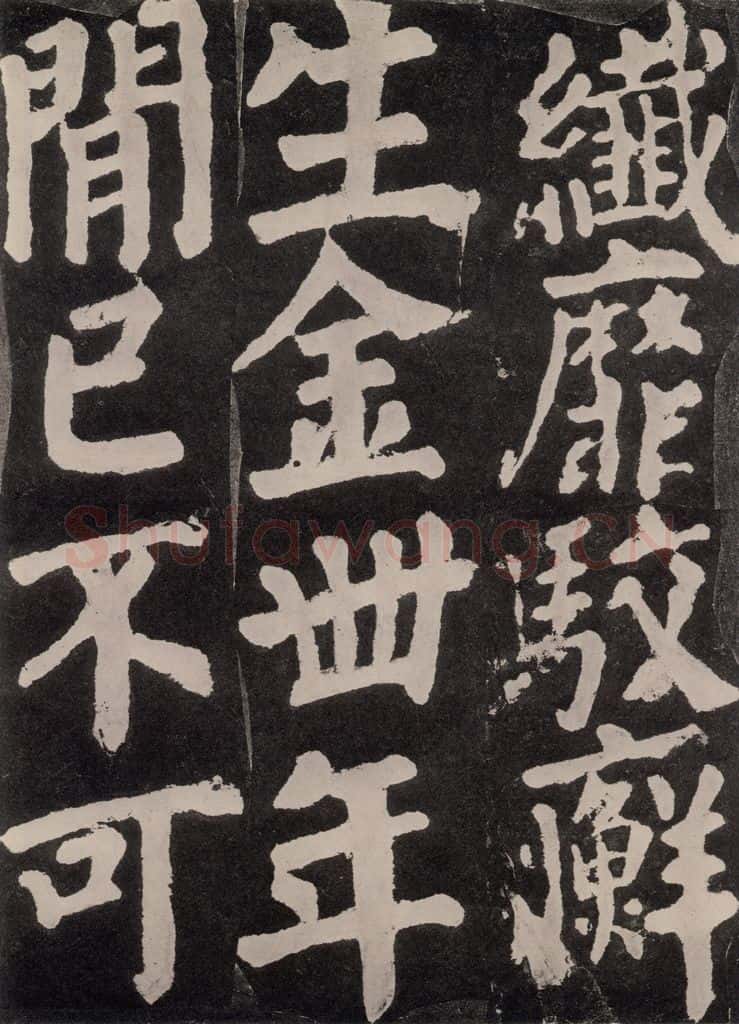 纖靡駮癬
生金卌年
閒已不可
Shufawang.CN